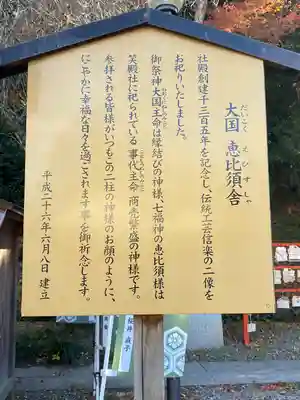 大国 恵比須舎
だいこく えびすしゃ
社殿創建千三百五年を記念し、伝統工芸信楽の二像を
お祀りいたしました。
御祭神大国主命は縁結びの神様、七福神の恵比須様は
おおくにぬしのみこと
笑殿社に祀られている事代主命 商売繁盛の神様です。
ことしろぬしのみこと
参拝される皆様がいつもこの二柱の神様のお顔のように、
にこやかに幸福な日々を過ごされます事を御祈念します。
平成二十六年六月八日 建立